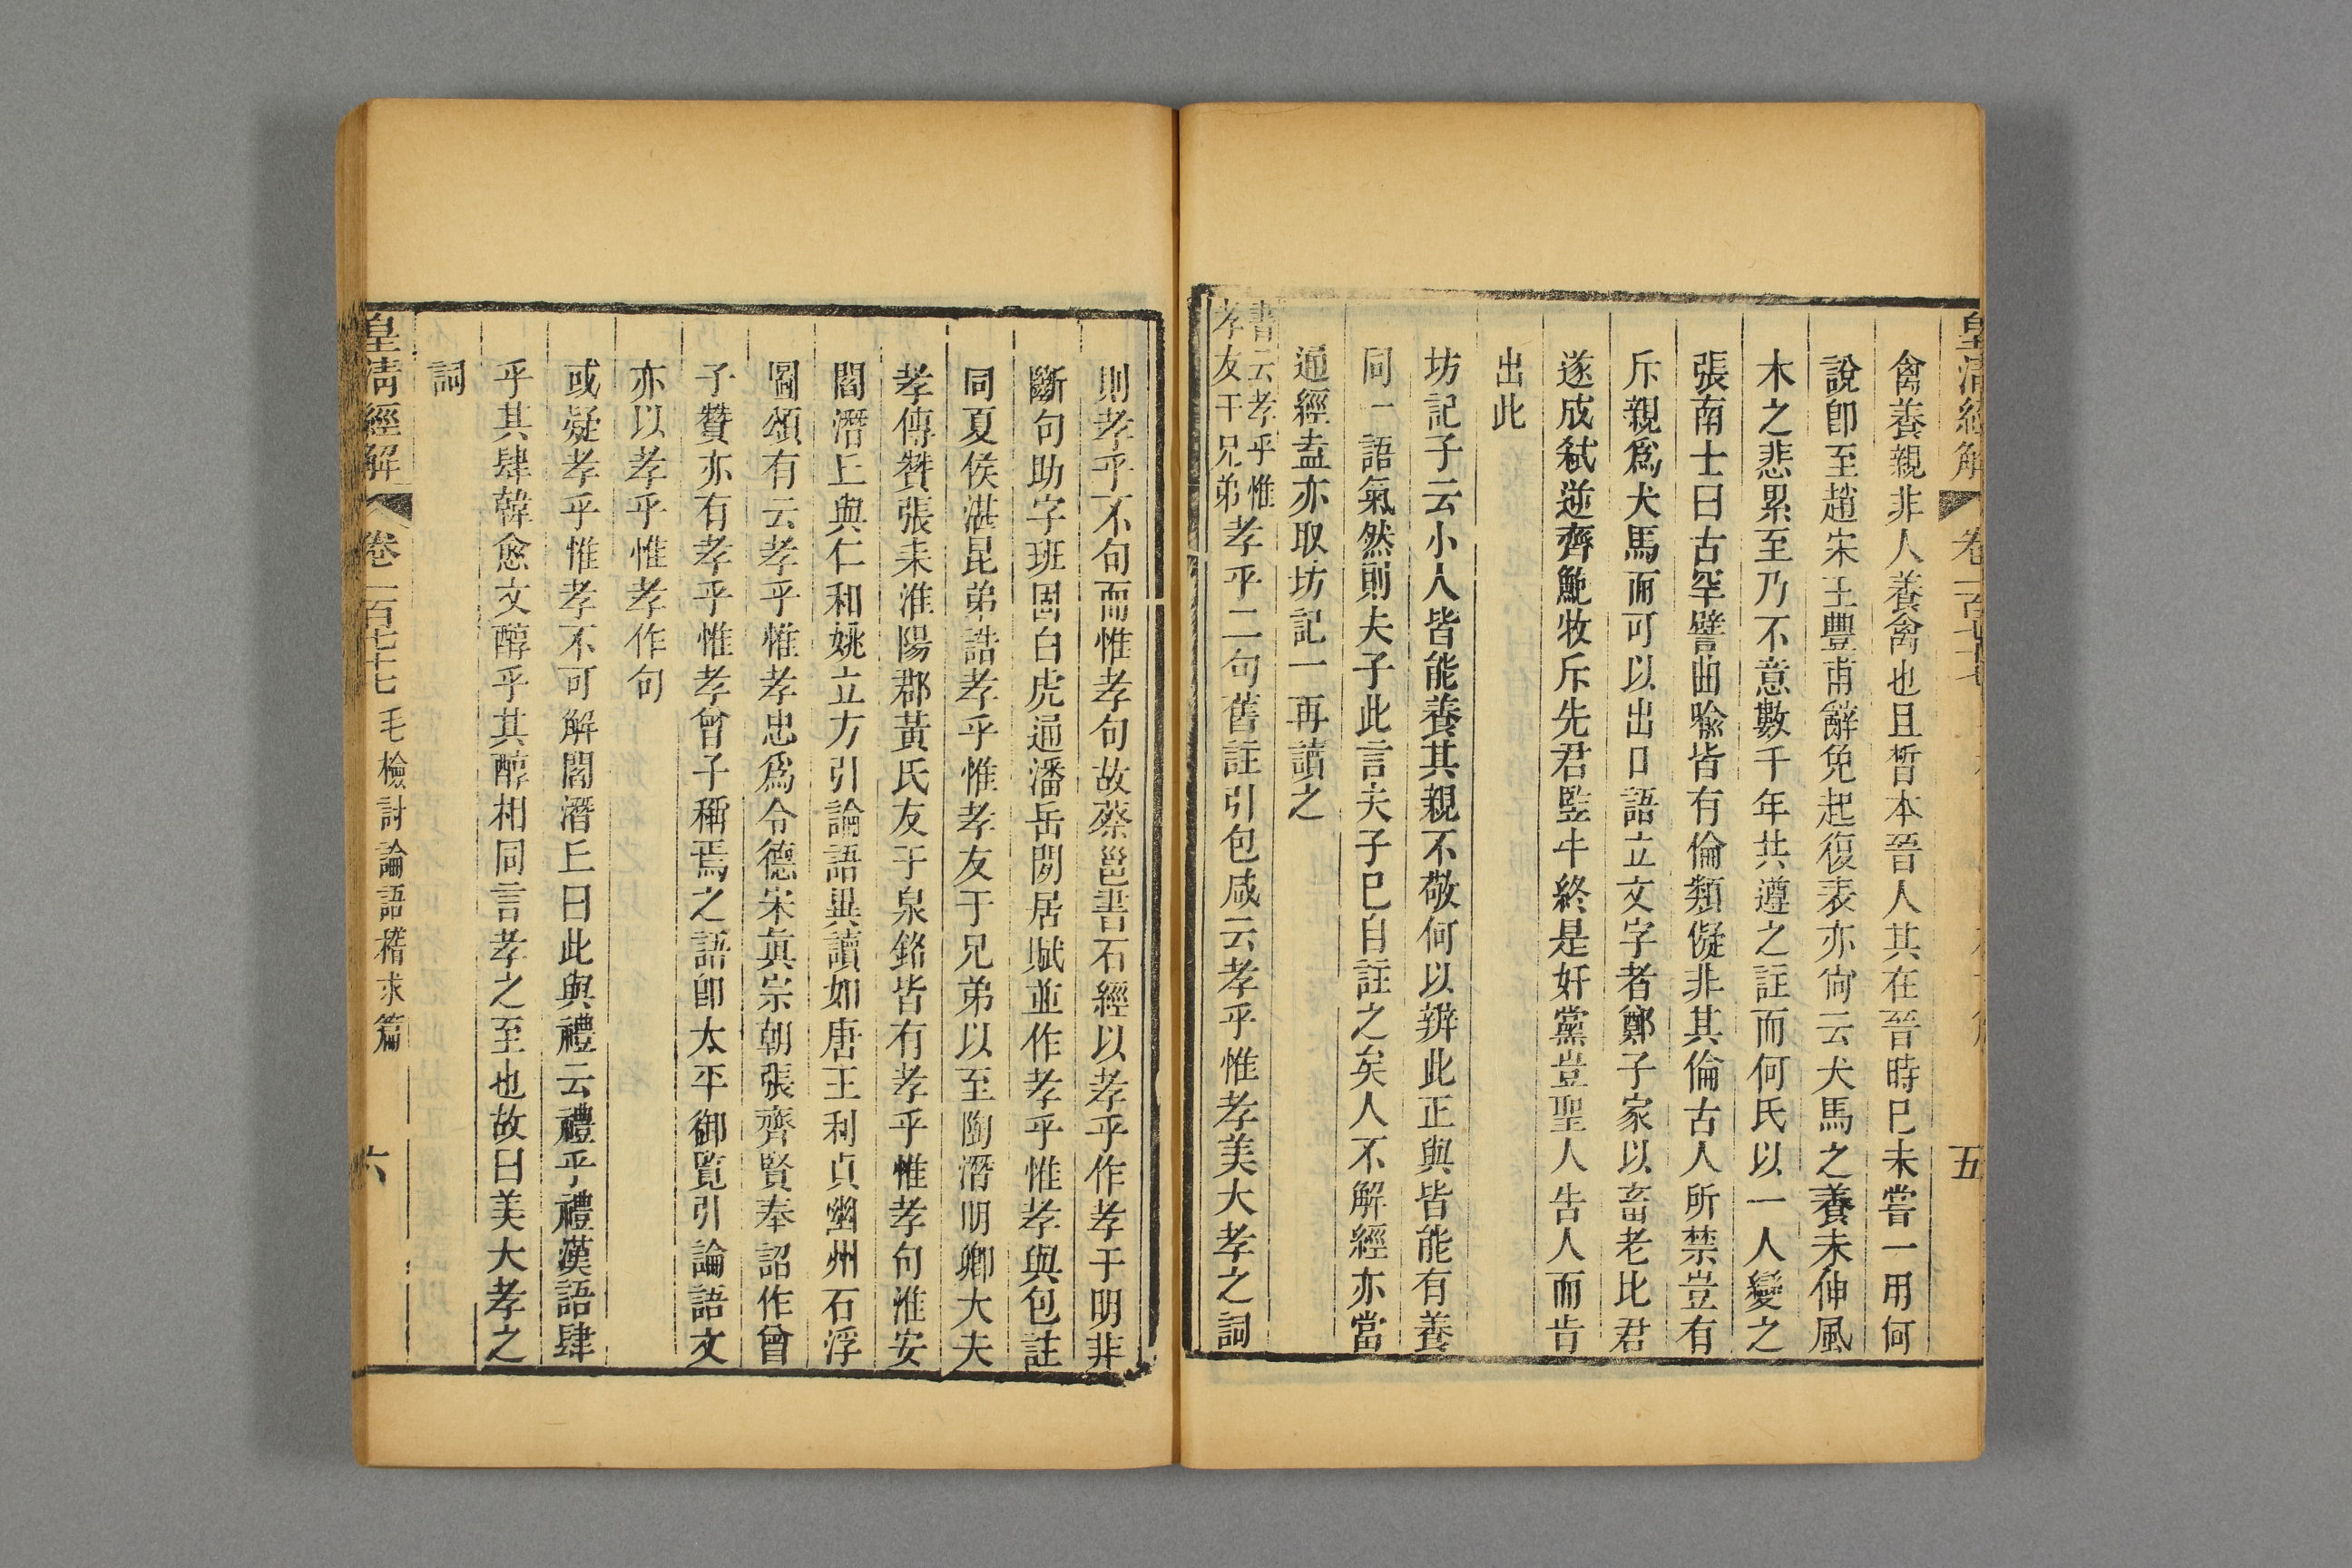 皇清經解 卷一百七十七 五
禽養親非人養禽也且皙本晉人其在晉時巳未嘗一用何
說卽至趙宋王豐甫辭免起復表亦尙云犬馬之養未伸風
木之悲累至乃不意數千年共遵之註而何氏以一人變之
張南士曰古罕譬曲喩皆有倫類儗非其倫古人所禁豈有
斥親爲犬馬而可以出口語立文字者鄭子家以畜老比君
遂成弑逆齊鮑牧斥先君豎牛終是奸黨豈聖人告人而肯
出此
坊記子云小人皆能養其親不敬何以辨此正與皆能有養
同一語氣然則夫子此言夫子巳自註之矣人不解經亦當
通經盍亦取坊記一再讀之
書云孝乎惟孝友于兄弟孝乎二句舊註引包咸云孝乎惟孝美大孝之詞
則孝乎不句而惟孝句故蔡邕書石經以孝乎作孝于明非
斷句助字班固白虎通潘岳閒居賦並作孝乎惟孝與包註
同夏侯湛昆弟誥孝乎惟孝友于兄弟以至陶潛明卿大夫
孝傳贊張耒淮陽郡黃氏友于泉銘皆有孝乎惟孝句淮安
閻潛丘與仁和姚立方引論語異讀如唐王利貞幽州石浮
圖頌有云孝乎惟孝忠爲令德宋眞宗朝張齊賢奉詔作曾
子贊亦有孝乎惟孝曾子稱焉之語卽太平御覧引論語文
亦以孝乎惟孝作句
或疑孝乎惟孝不可解閻潛丘曰此與禮云禮乎禮漢語肆
乎其肆韓愈文醇乎其醇相同言孝之至也故曰美大孝之
詞
皇清經解 卷一百七十七 毛檢討論語稽求篇 六